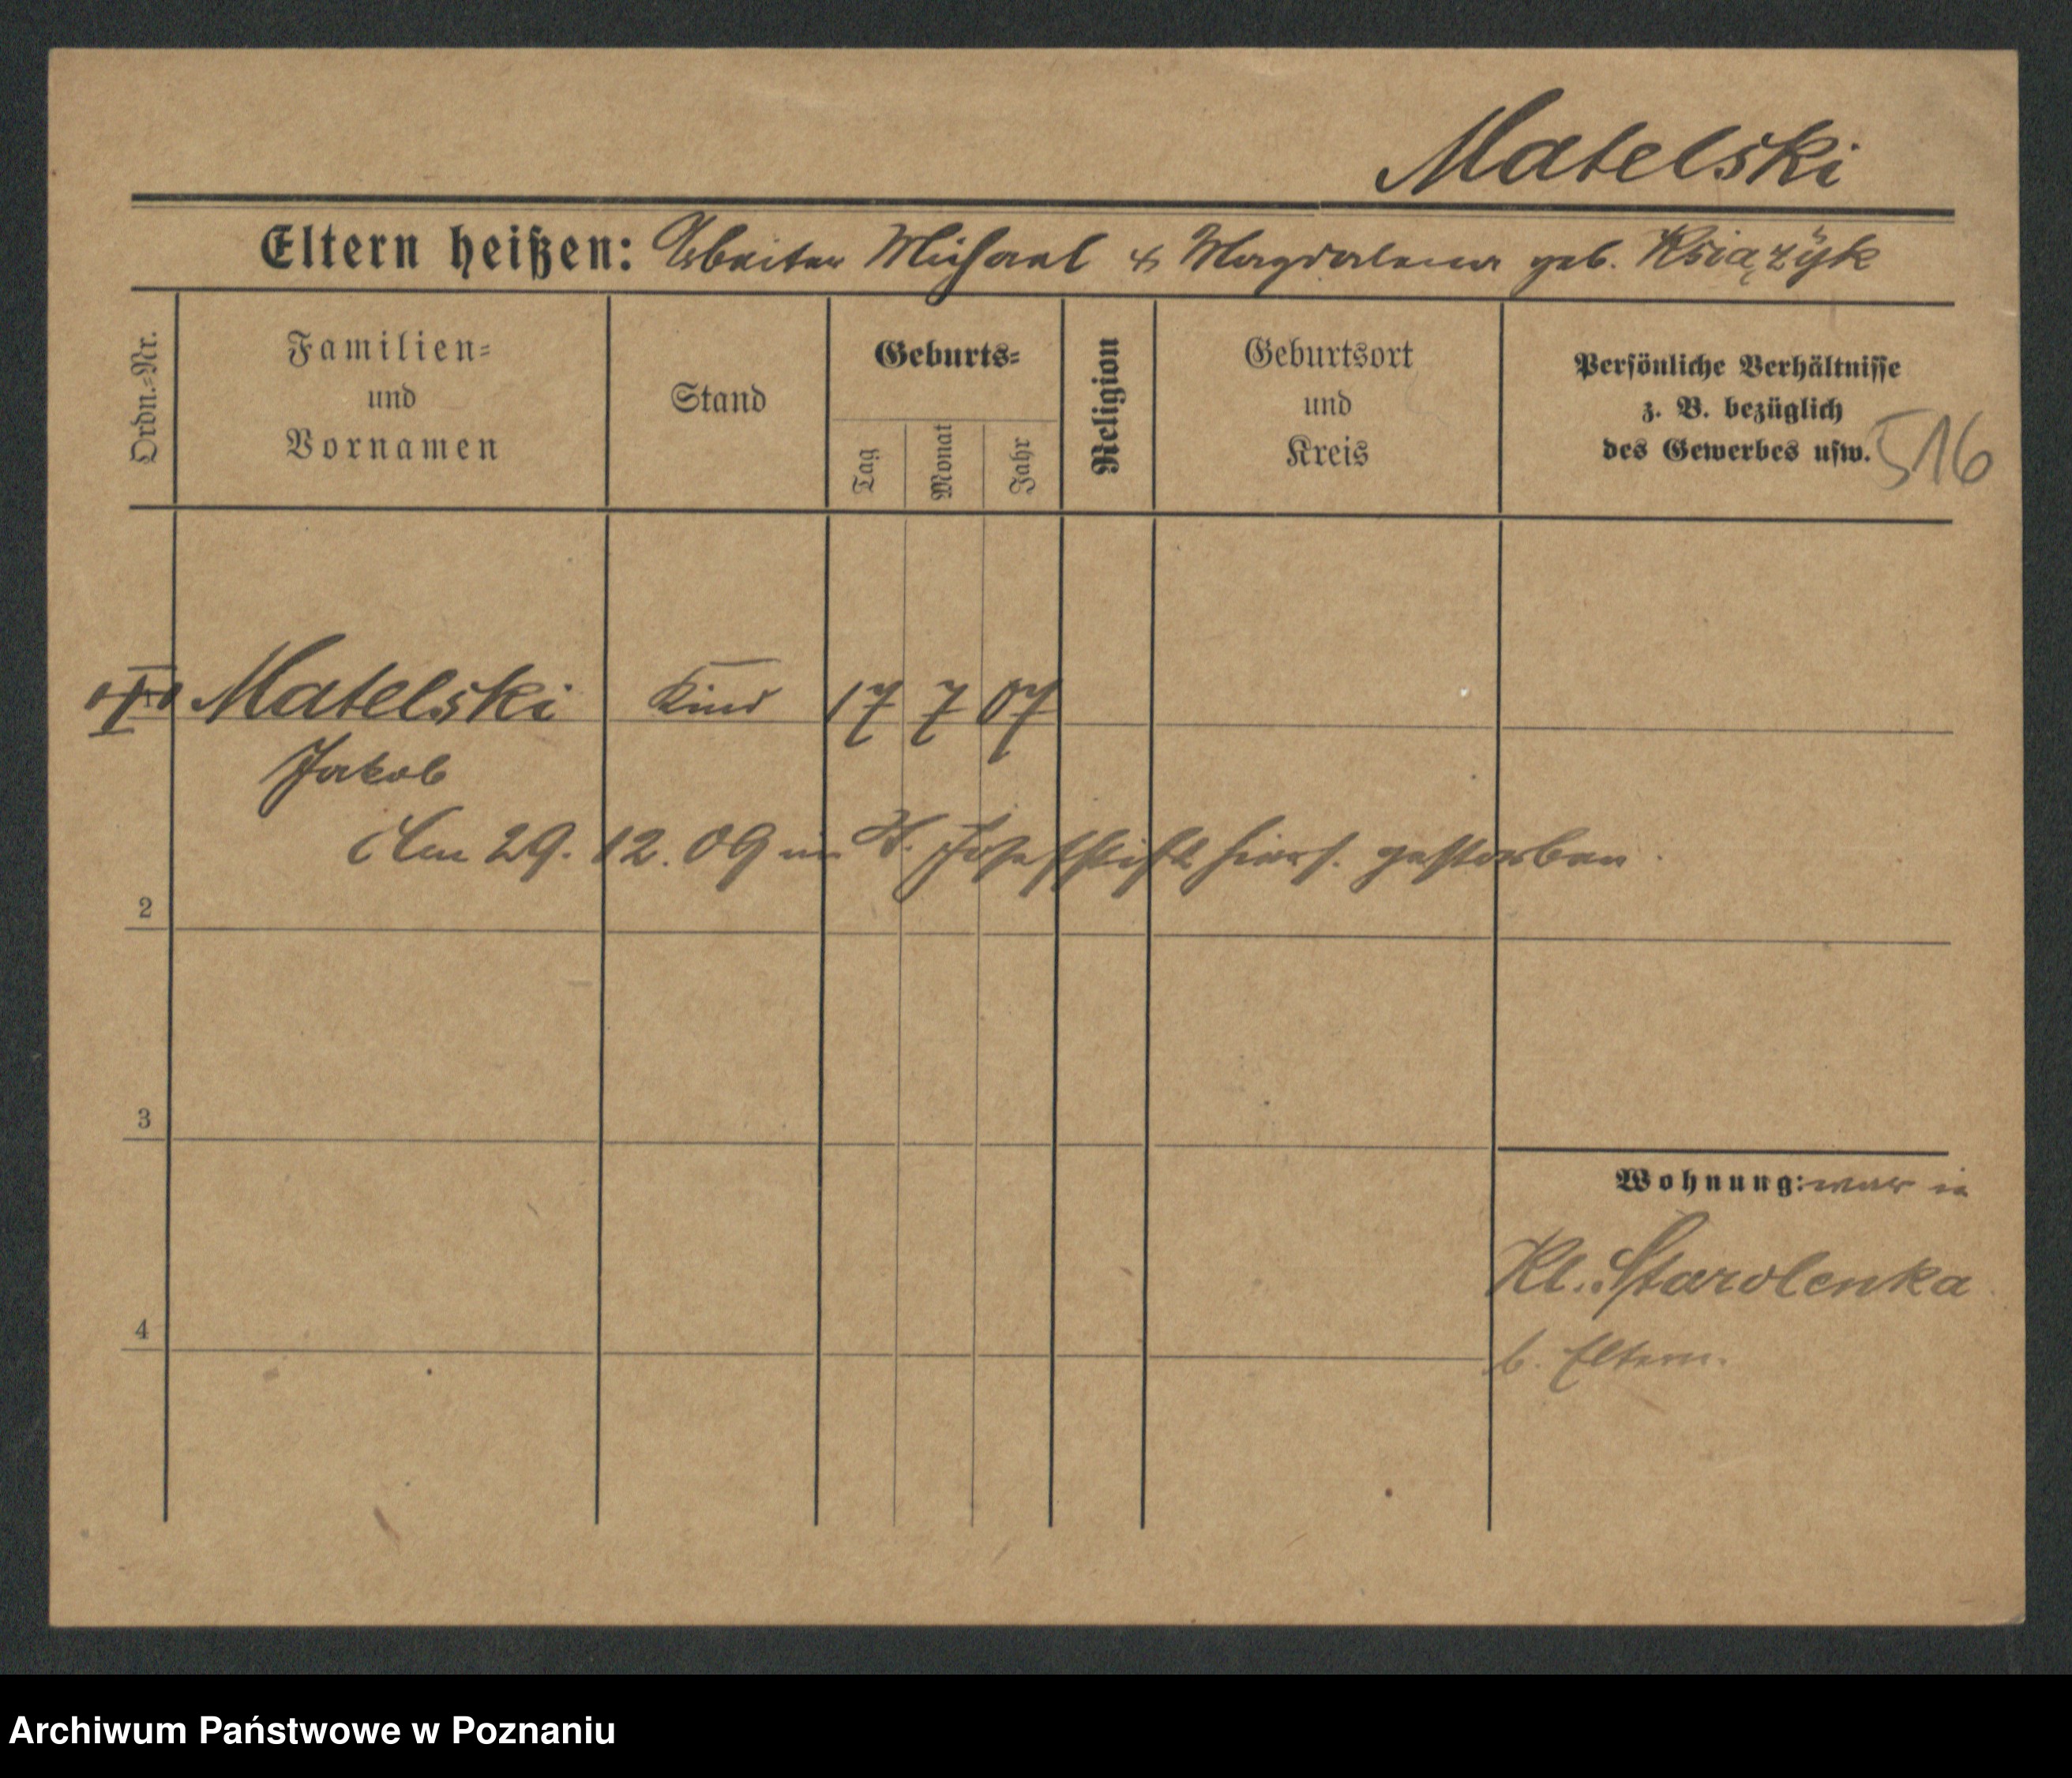 Matelski
Eltern heißen: Arbeiter Michael & Magdalena geb. Książÿk
Ordn.=Nr.
Familien=
und
Vornamen
Stand
Geburts=
Tag
Monat
Jahr
Religion
Geburtsort
und
Kreis
Persönliche Verhältnisse
z. B. bezüglich
des Gewerbes usw.
516
Matelski Kind 17 7 07
Jakob
Am 29. 12. 09 im St. Josefstift hiers. gestorben.
2
3
Wohnung: war in
Kl. Starolenka
4
b. Eltern.
Archiwum Państwowe w Poznaniu